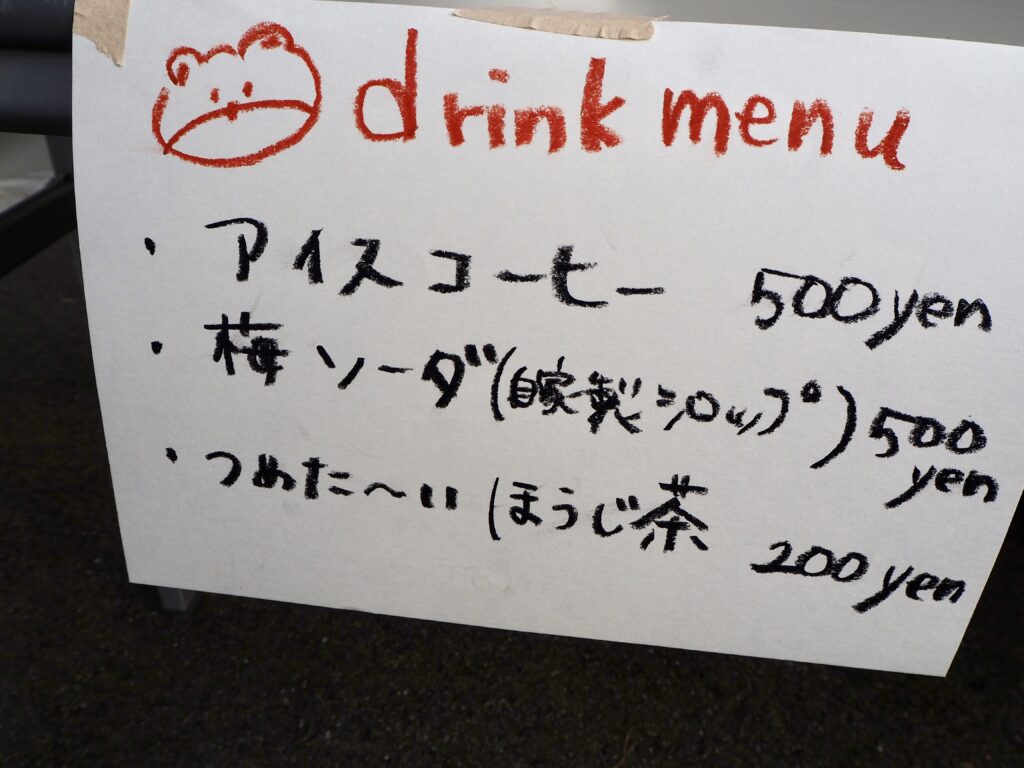 drink menu
・アイスコーヒー 500yen
・梅ソーダ(自家製シロップ) 500
yen
・つめた〜い(ほうじ茶 200yen